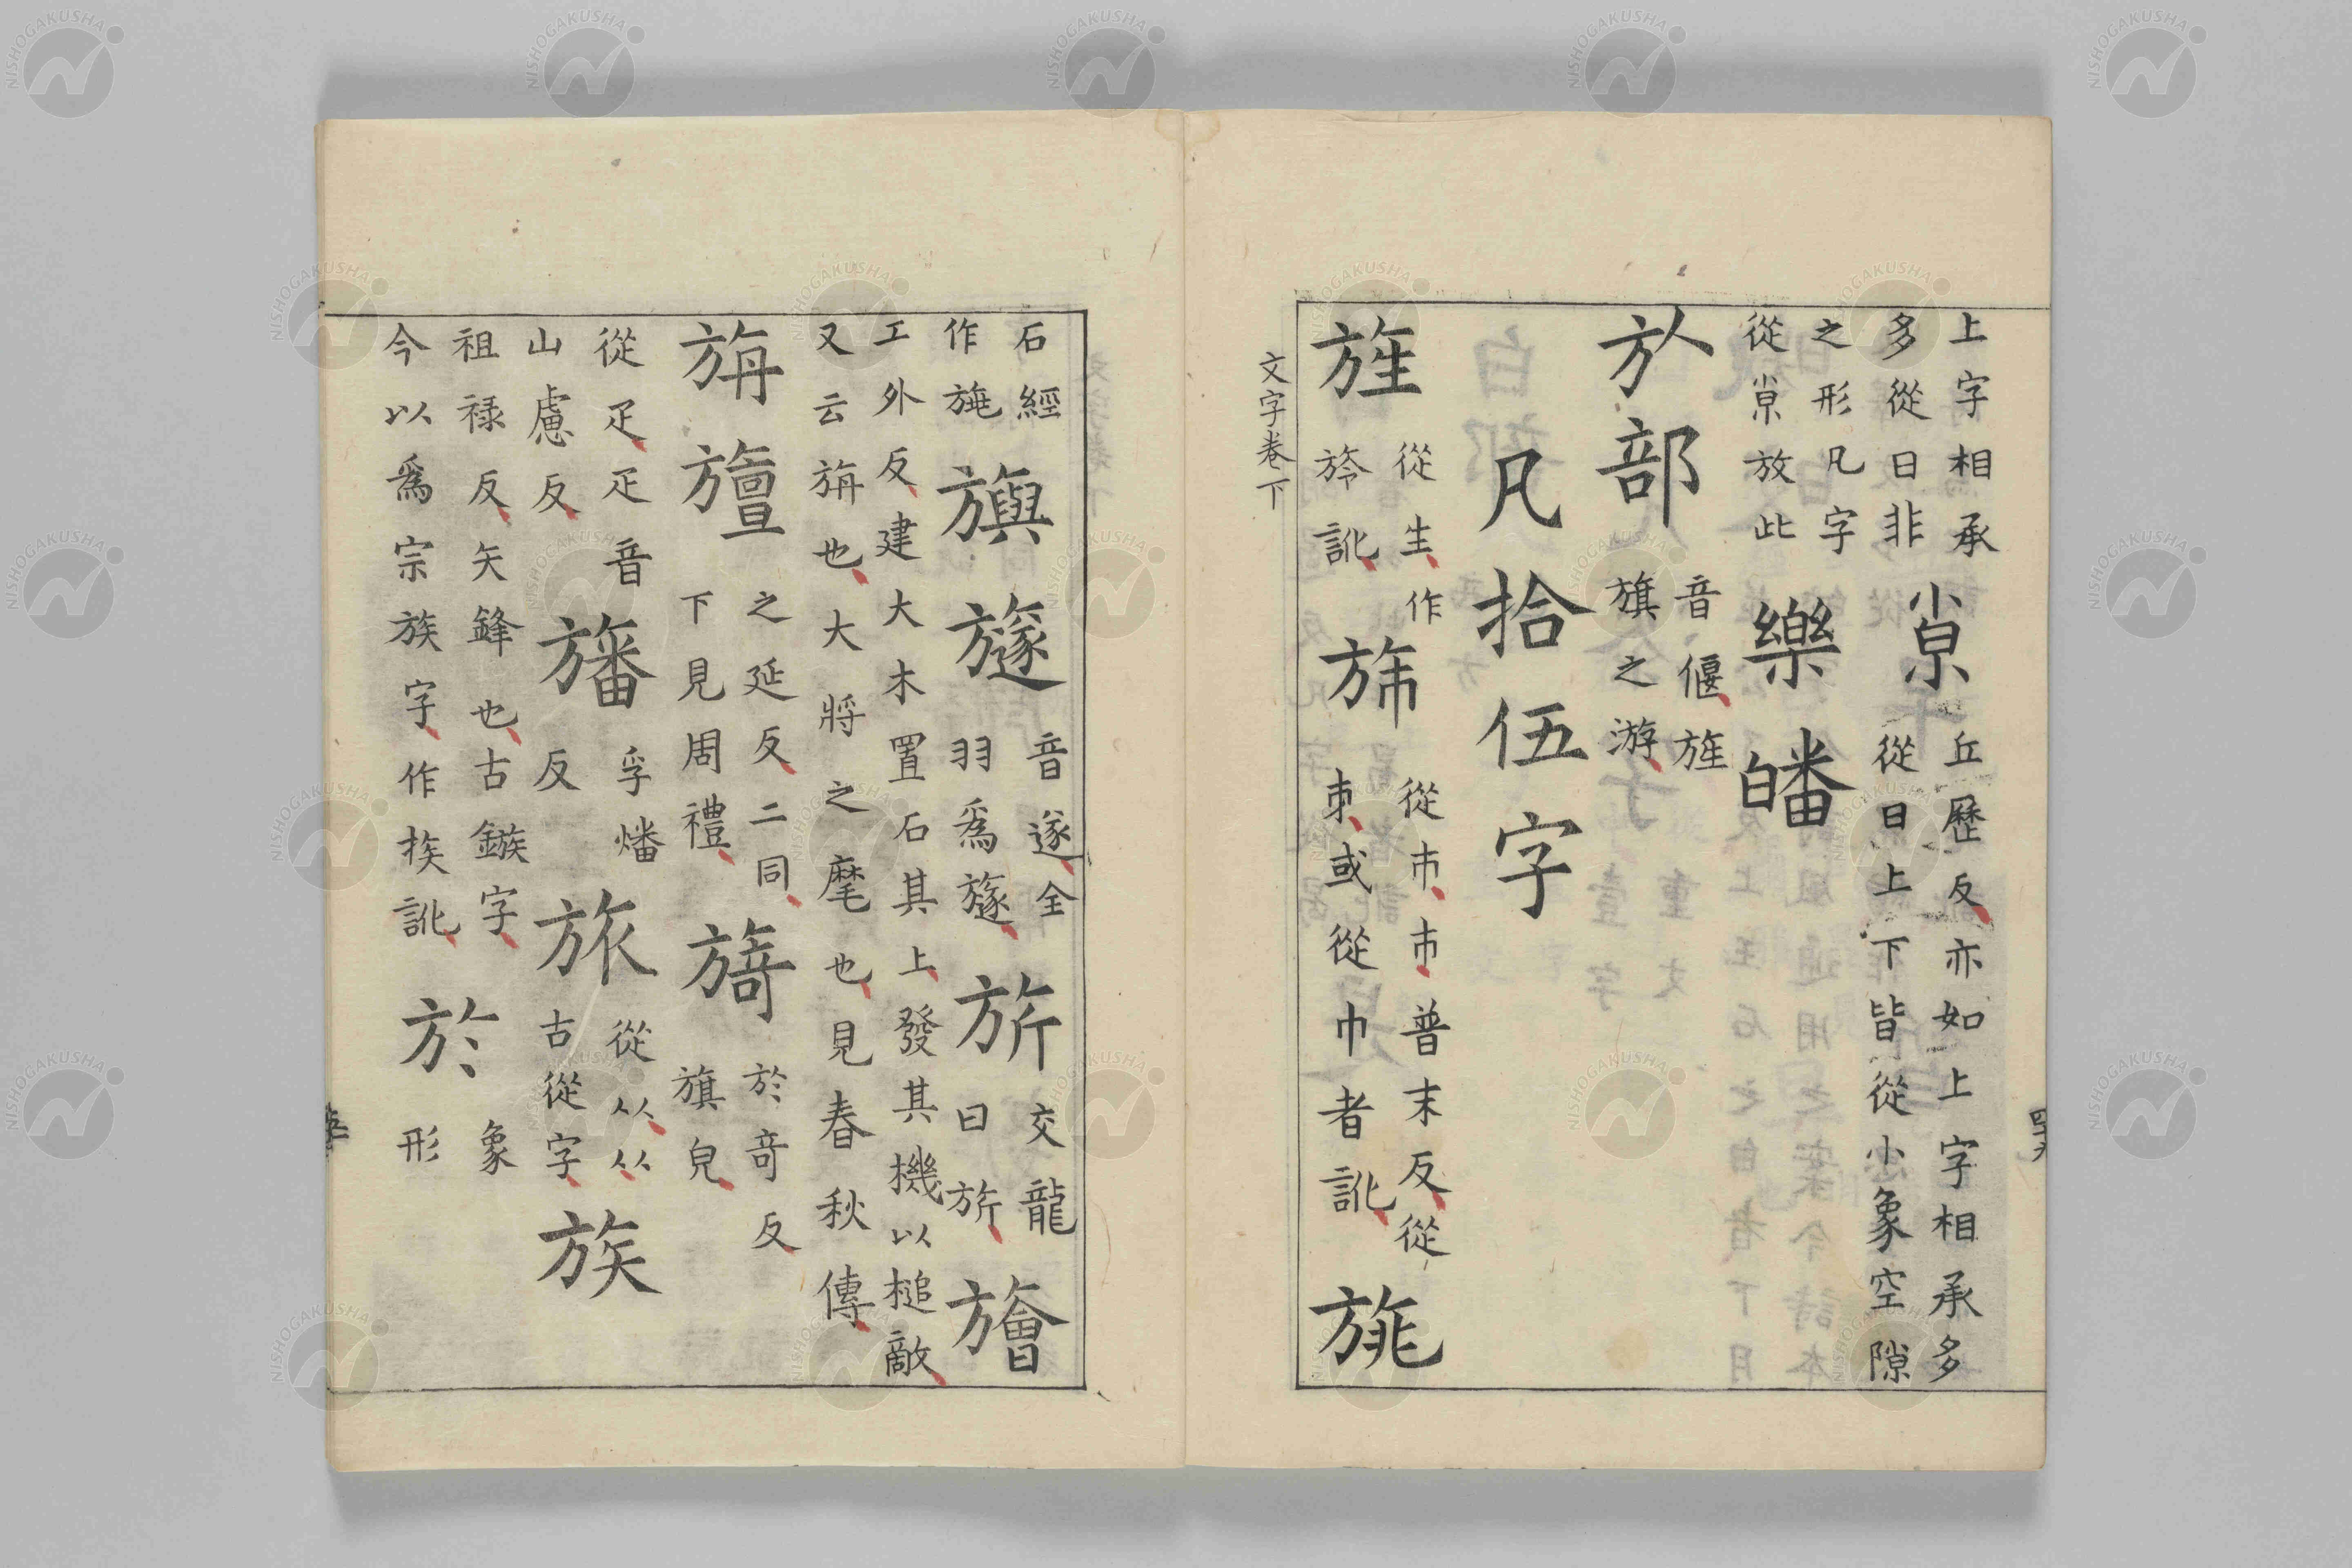 上字相承
多從日非
𡭴
丘歷反亦如上字相承多
從日上下皆從小象空隙
之形凡字
從𡭴放此
樂皤
㫃部
音偃旌
旗之游
凡拾伍字
旌
從生作
旍訛
旆
從巿巿普末反從
朿或從巾者訛
旐
文字卷下
四九
石經
作
旟旞
音遂全
羽爲旞
旂
交龍
曰旂
旝
工外反建大木置石其上發其機以槌敵
又云旃也大將之麾也見春秋傳
旃旜
之延反二同
下見周禮
旖
於奇反
旗皃
從疋疋音
山慮反
旛
孚燔
反
旅
從从从
古從字
族
祖禄反矢鋒也古鏃字
今以爲宗族字作訛
於
象
形
NISHOGAKUSHA